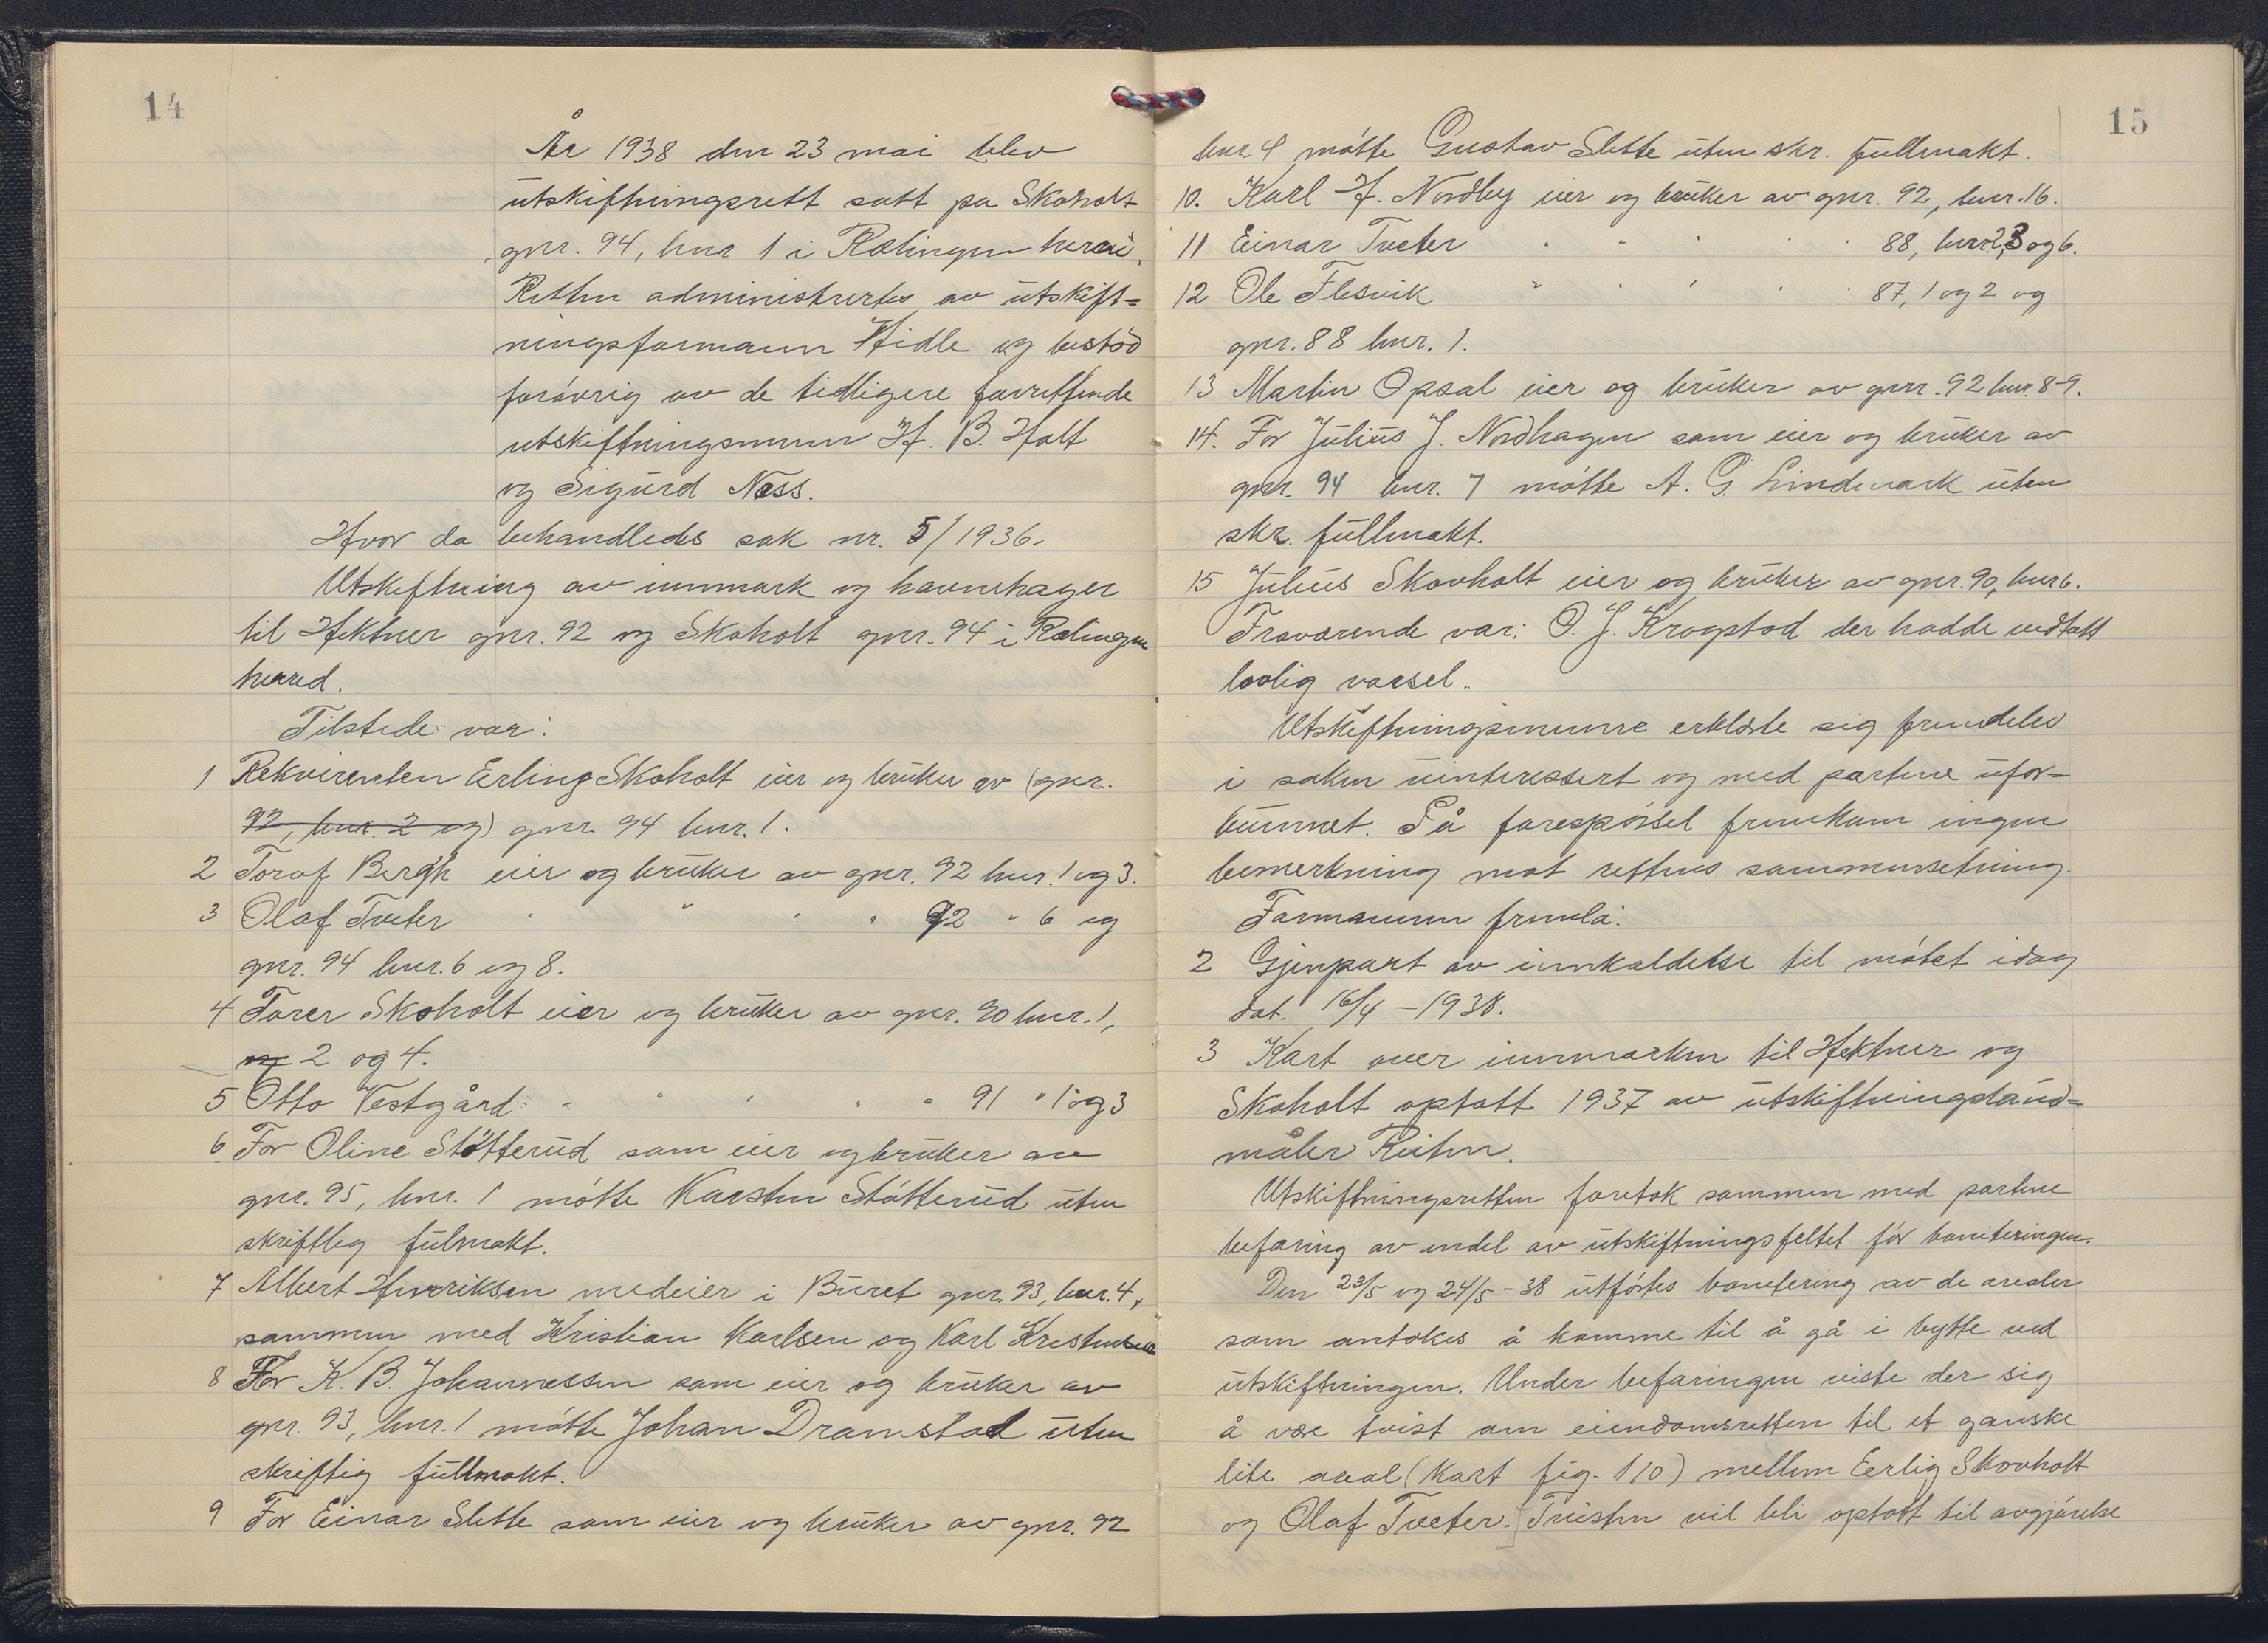 14
År 1938 den 23 mai blev
utskiftningsrett satt på Skoholt
gnr. 94, bnr 1 i Rælingen herad.
Retten administrertes av utskift=
ningsformann Hidle og bestod
forøvrig av de tidligere favrettende
utskiftningsmenn H. B. Holt
og Sigurd Næss.
Hvor da behandledes sak nr. 5/1936.
Utskiftning av innmark og havnehager
til Hektner gnr. 92 og Skoholt gnr. 94 i Rælingen
herred.
Tilstede var:
1 Rekvirenten Erling Skoholt eier og bruker av (gnr.
92, bnr. 2 og) gnr. 94 bnr. 1.
2 Torof Bergh eier og bruker av gnr. 92 bnr. 1 og 3.
3 Olaf Tveter " " " " 92 " 6 og
gnr. 94 bnr. 6 og 8.
4 Torer Skoholt eier og bruker av gnr. 90 bnr. 1,
og 2 og 4.
5 Otto Vestgård " " " " " 91 " 1 og 3
6 For Oline Støtterud som eier og bruker av
gnr. 95, bnr. 1 møtte Karsten Støtterud uten
skriftleg fulmakt.
7 Albert Henriksen medeier i Buret gnr. 93, bnr. 4,
sammen med Kristian Karlsen og Karl Kristensen
8 For K. B. Johannessen som eier og bruker av
gnr. 93, bnr. 1 møtte Johan Dramstad uten
skriftig fullmakt.
9 For Einar Slette som eier og bruker av gnr. 92
15
bnr 4 møtte Gustav Slette uten skr. fullmakt.
10. Karl H. Nordby eier og bruker av gnr. 92, bnr. 16.
11 Einar Tveter " " " " " 88, bnr. 2, 3 og 6.
12 Ole Flesvik " " " " " 87, 1 og 2 og
gnr. 88 bnr. 1.
13 Martin Opsal eier og bruker av gnr. 92 bnr. 8-9.
14. For Julius J. Nordhagen som eier og bruker av
gnr. 94 bnr. 7 møtte A. G. Lindemark uten
skr. fullmakt.
15 Julius Skovholt eier og bruker av gnr. 90, bnr 6.
Fraværende var: O. J. Krogstad der hadde vedtatt
lovlig varsel.
Utskiftningsmenne erklærte sig fremdeles
i saken uinteressert og med partene ufor=
bunnet. På forespørsel fremkom ingen
bemerkning mot rettens sammensetning.
Formannen fremla:
2 Gjenpart av innkaldelse til møtet idag
dat. 16/4 - 1938.
3 Kart over innmarken til Hektner og
Skoholt optatt 1937 av utskiftningsland=
måler Ruten.
Utskiftningsretten foretok sammen med partene
befaring av endel av utskiftningsfeltet før boniteringen.
Den 23/5 og 24/5 - 38 utførtes bonitering av de arealer
som antokes å komme til å gå i bytte ved
utskiftningen. Under befaringen viste der sig
å være tvist om eiendomsretten til et ganske
lite areal (kart fig. 110) mellem Eerlig Skovholt
og Olaf Tveter. [Tvisten vil bli optatt til avgjørelse